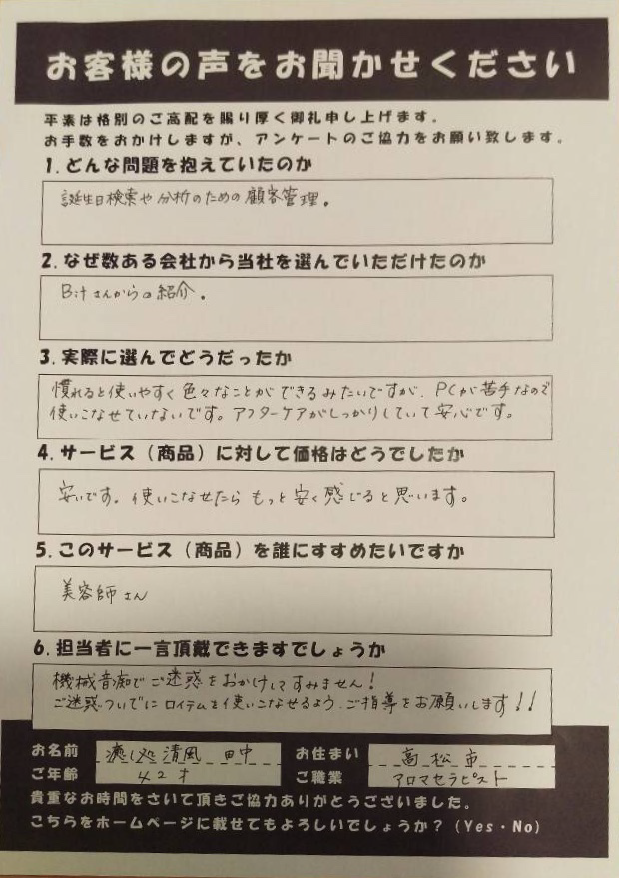 お客様の声をお聞かせください
平素は格別のご高配を賜り厚く御礼申し上げます。
お手数をおかけしますが、アンケートのご協力をお願い致します。
1.どんな問題を抱えていたのか
誕生日検索や分析のための顧客管理。
2.なぜ数ある会社から当社を選んでいただけたのか
さんからの紹介。
3.実際に選んでどうだったか
慣れると使いやすく色々なことができるみたいですが、PCが苦手なので
使いこなせていないです。アフターケアがしっかりしていて安心です。
4.サービス(商品)に対して価格はどうでしたか
安いです。使いこなせたらもっと安く感じると思います。
5.このサービス(商品)を誰にすすめたいですか
美容師さん
6.担当者に一言頂戴できますでしょうか
機械音痴でご迷惑をおかけしてすみません!
ご迷惑ついでにロイテムを使いこなせるよう、ご指導をお願いします!!
お名前 癒し処 清風 田中 お住まい 高松市
ご年齢 42才 ご職業 アロマセラピスト
貴重なお時間をさいて頂きご協力ありがとうございました。
こちらをホームページに載せてもよろしいでしょうか?(Yes・No)